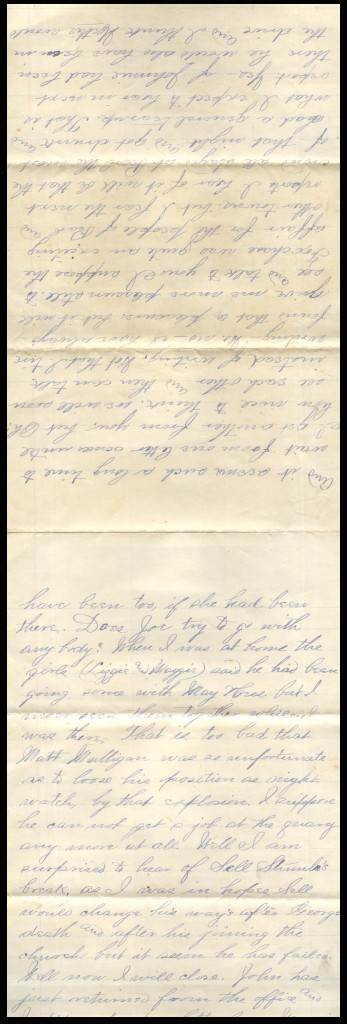 And it seems such a long time to
wait from one letter some untill
I get another from you, but Oh!
how nice to think, we will soon
see each other and then can talk
instead of writing. Not that I
writing
that a pleasure but it will
give me more pleasure still to
see and talk to you. I suppose the
Fox chase was quite an exciting
affair for the people of and
other towns. but I fear the next
reports I hear of it will be that the
all stayed at the most
of that night and got drunk and
had a general That is
what I expect to hear in next
report. Yes – if Johnnie had been
there he would also have been in
the drive and I think Hattie would
have been too, if she had been
there. Does Joe try to go with
any body? When I was at home the
girls (Lizzie & Maggie) said he had been
going some with May but I
never seen them together when I
was there. That is too bad that
Matt Mulligan was so unfortunate
as to loose his position as night
watch, by that explosion. I suppose
he can not get a job at the quarry
any more at all. Well I am
surprised to hear of
break, as I was in hopes
would change his ways after George
death and after his joining the
church but it seem he has failed.
Well now I will close. John has
just returned from the office and